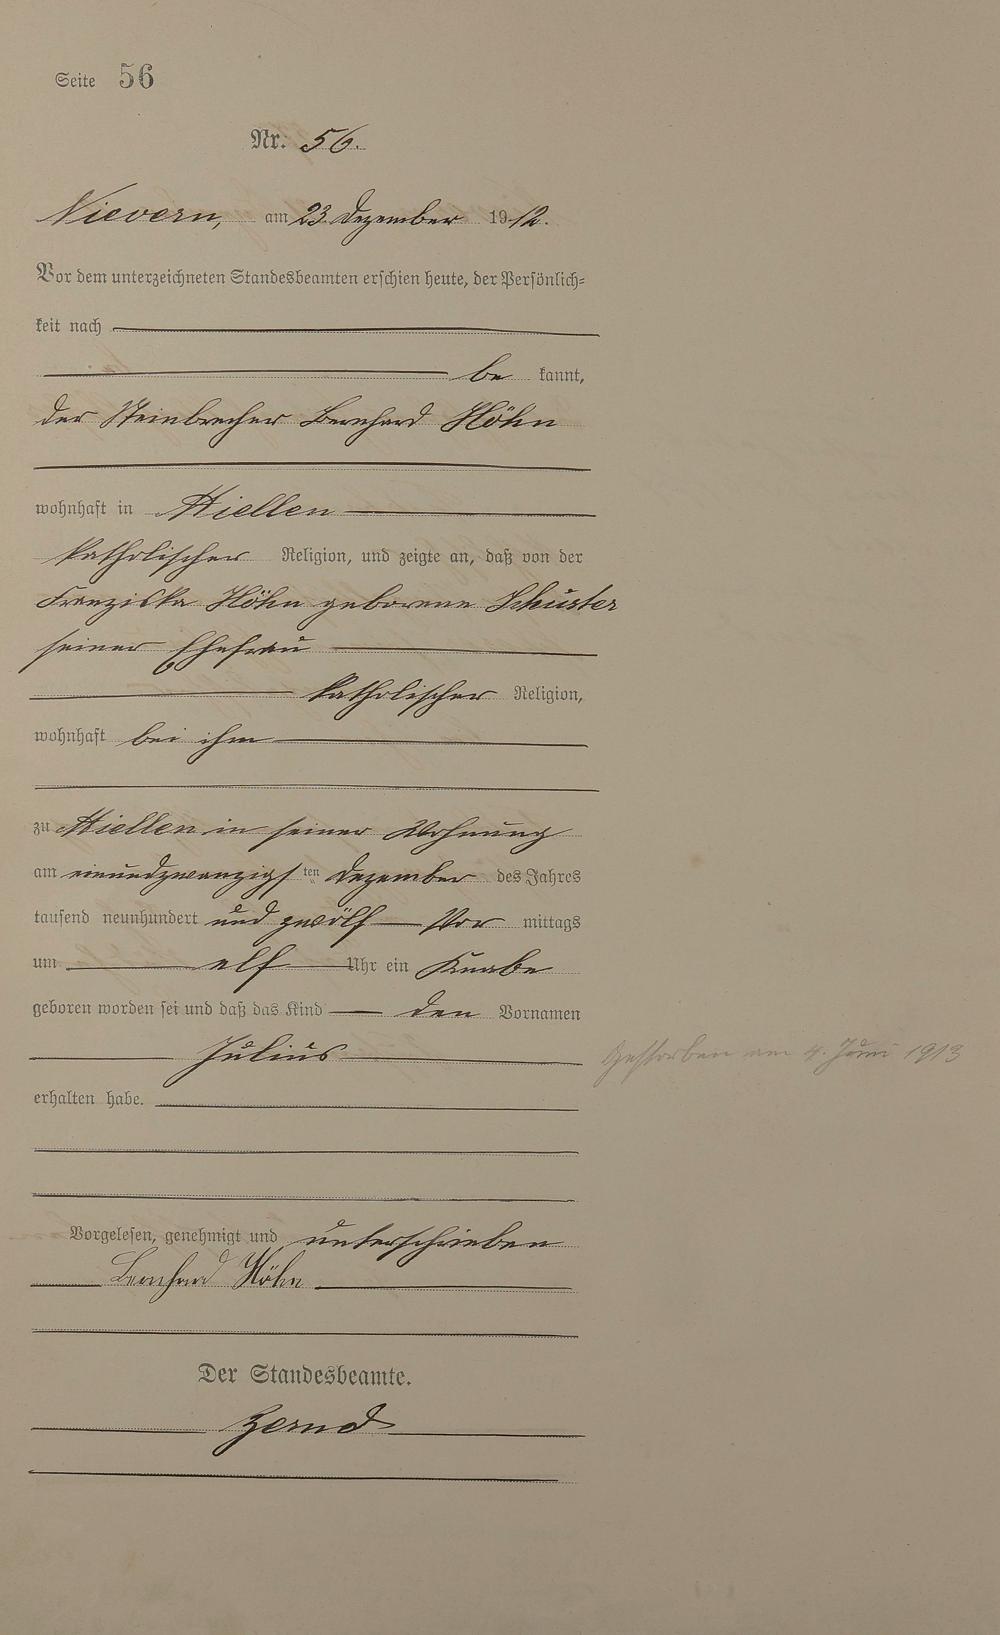 Seite 56
Nr. 56.
Nievern, am 23. Dezember 1912.
Vor dem unterzeichneten Standesbeamten erschien heute, der Persönlich-
keit nach
be kannt,
der Steinbrecher Bernhard Höhn
wohnhaft in Miellen
katholischer Religion, und zeigte an, daß von der
Franziska Höhn geborene Schuster
seiner Ehefrau
katholischer Religion,
wohnhaft bei ihm
zu Miellen in seiner Wohnung
am einundzwanzigsten Dezember des Jahres
tausend neunhundert und zwölf Vor mittags
um elf Uhr ein Knabe
geboren worden sei und daß das Kind den Vornamen
Julius
Gestorben am 4. Juni 1913
erhalten habe.
Vorgelesen, genehmigt und unterschrieben
Bernhard Höhn
Der Standesbeamte.